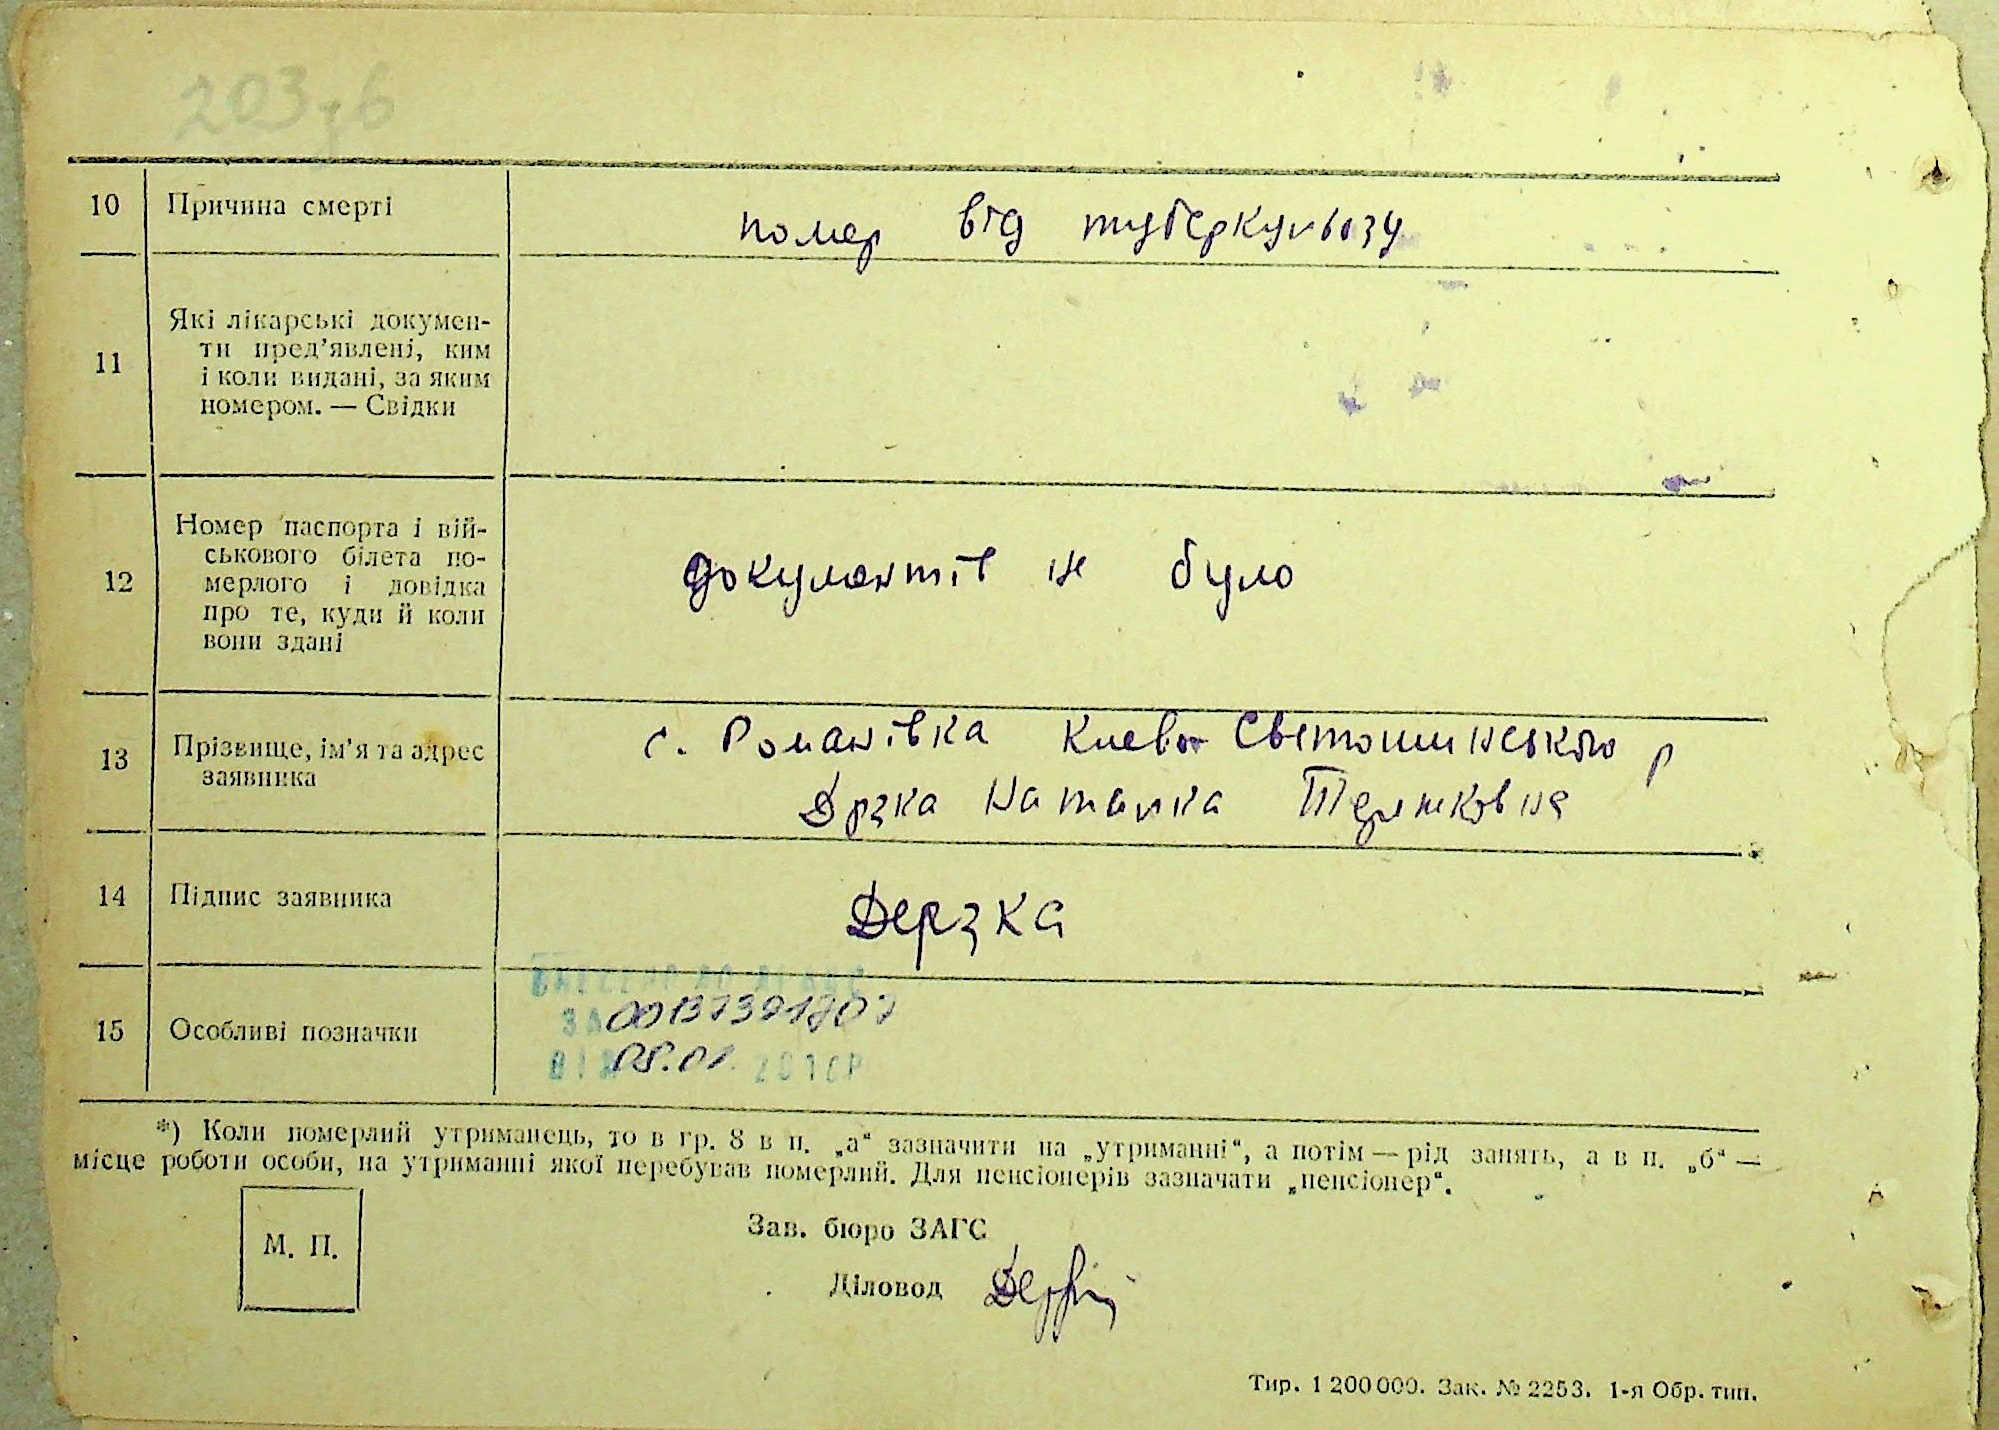 10 Причина смерті
помер від туберкульозу
11 Які лікарські докумен-
ти пред’явлені, ким
і коли видані, за яким
номером. — Свідки
12 Номер паспорта і вій-
ськового білета по-
мерлого і довідка
про те, куди й коли
вони здані
документів не було
13 Прізвище, ім’я та адрес
заявника
с. Романівка Києво Светошинського р
Дрзка Наталка
14 Підпис заявника
Дерзка
15 Особливі позначки
ЗА
ВІД 08.01. 201 Р
*) Коли померлий утриманець, то в гр. 8 в п. „а“ зазначити на „утриманні“, а потім — рід занять, а в п. „б“ —
місце роботи особи, на утриманні якої перебував померлий. Для пенсіонерів зазначати „пенсіонер“.
М. П.
Зав. бюро ЗАГС
Діловод
Тир. 1 200 000. Зак. № 2253. 1-я Обр. тип.